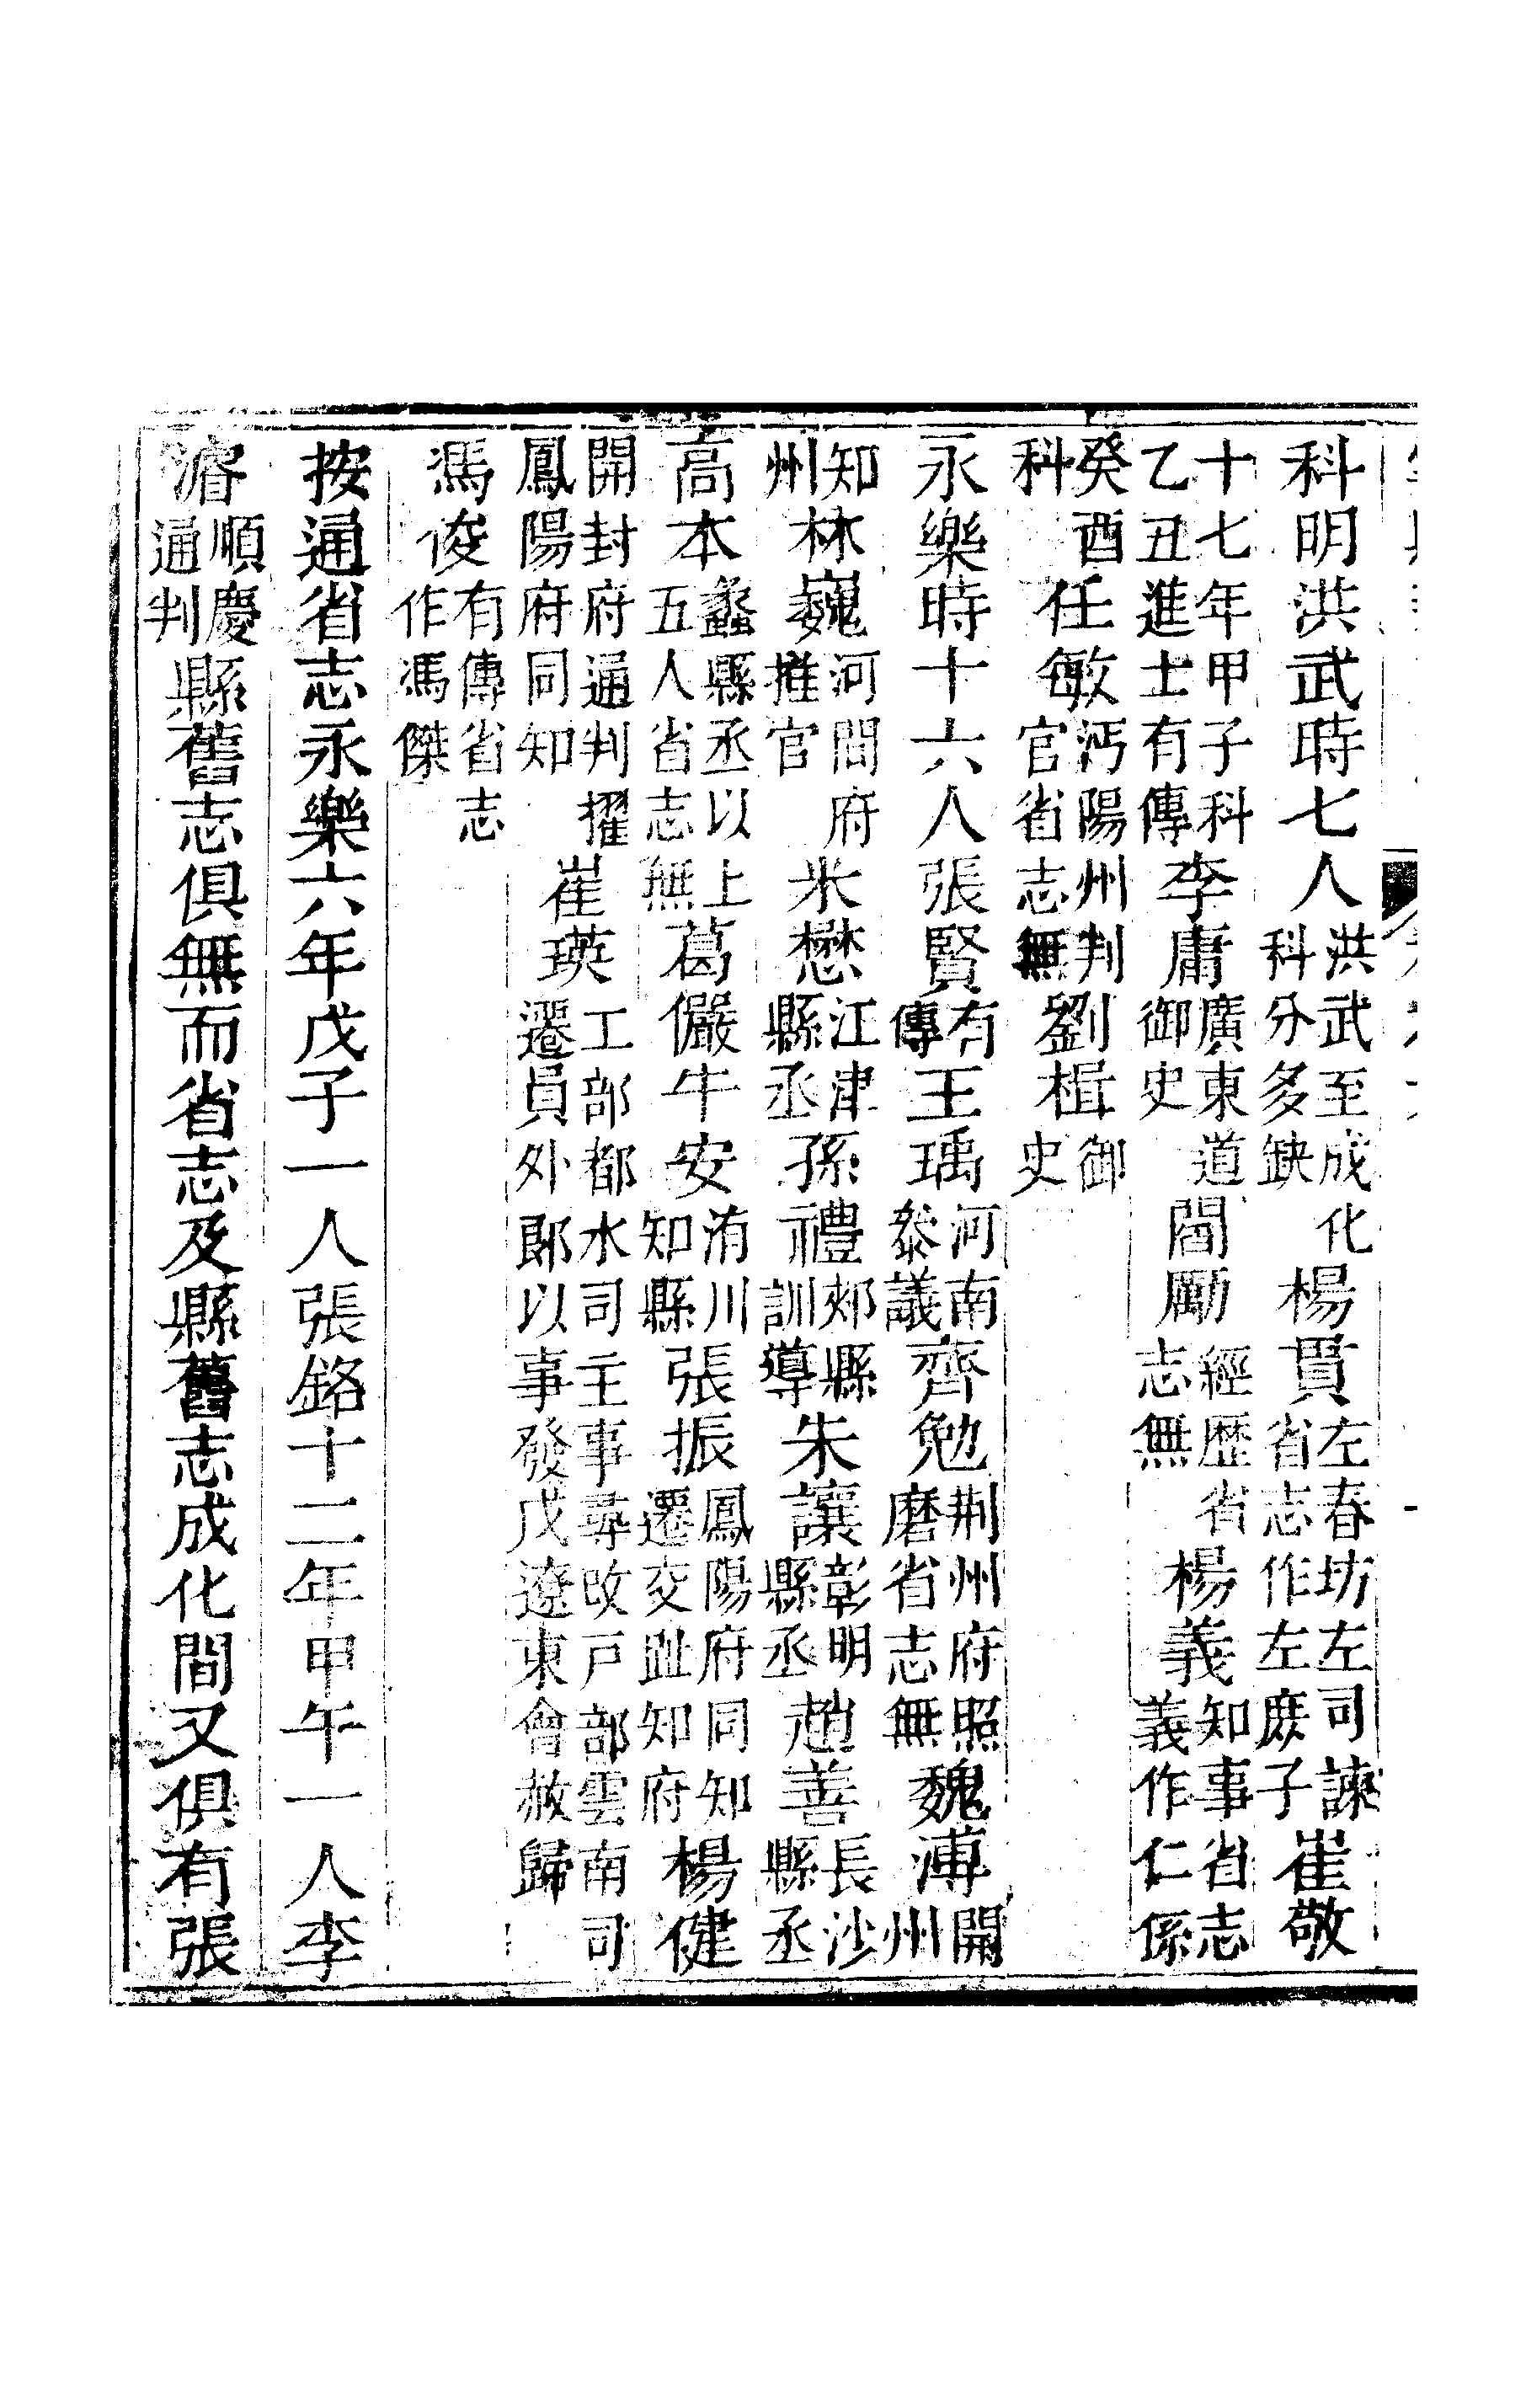 科明洪武時七人洪武至成化科分多缺楊貫左春坊左司諫省志作左庶子崔敬
十七年甲子科乙丑進士有傳李庸廣東道御史閻勵經歷省志無楊義知事省志義作仁係
癸酉科任敏沔陽州判官省志無劉楫御史
永樂時十六人張賢有傳王瑀河南叅議齊勉荆州府照磨省志無魏溥開州
知州林巍河間府推官米懋江津縣丞孫禮郟縣訓導朱讓彰明縣丞趙善長沙縣丞
高本蠡縣丞以上五人省志無葛儼牛安洧川知縣張振鳳陽府同知遷交趾知府楊健
開封府通判擢鳳陽府同知崔瑛工部都水司主事尋改戸部雲南司遷員外郎以事發戍遼東會赦歸
馮俊有傳省志作馮傑
按通省志永樂六年戊子一人張銘十二年甲午一人李
濬順慶通判縣舊志俱無而省志及縣舊志成化間又俱有張